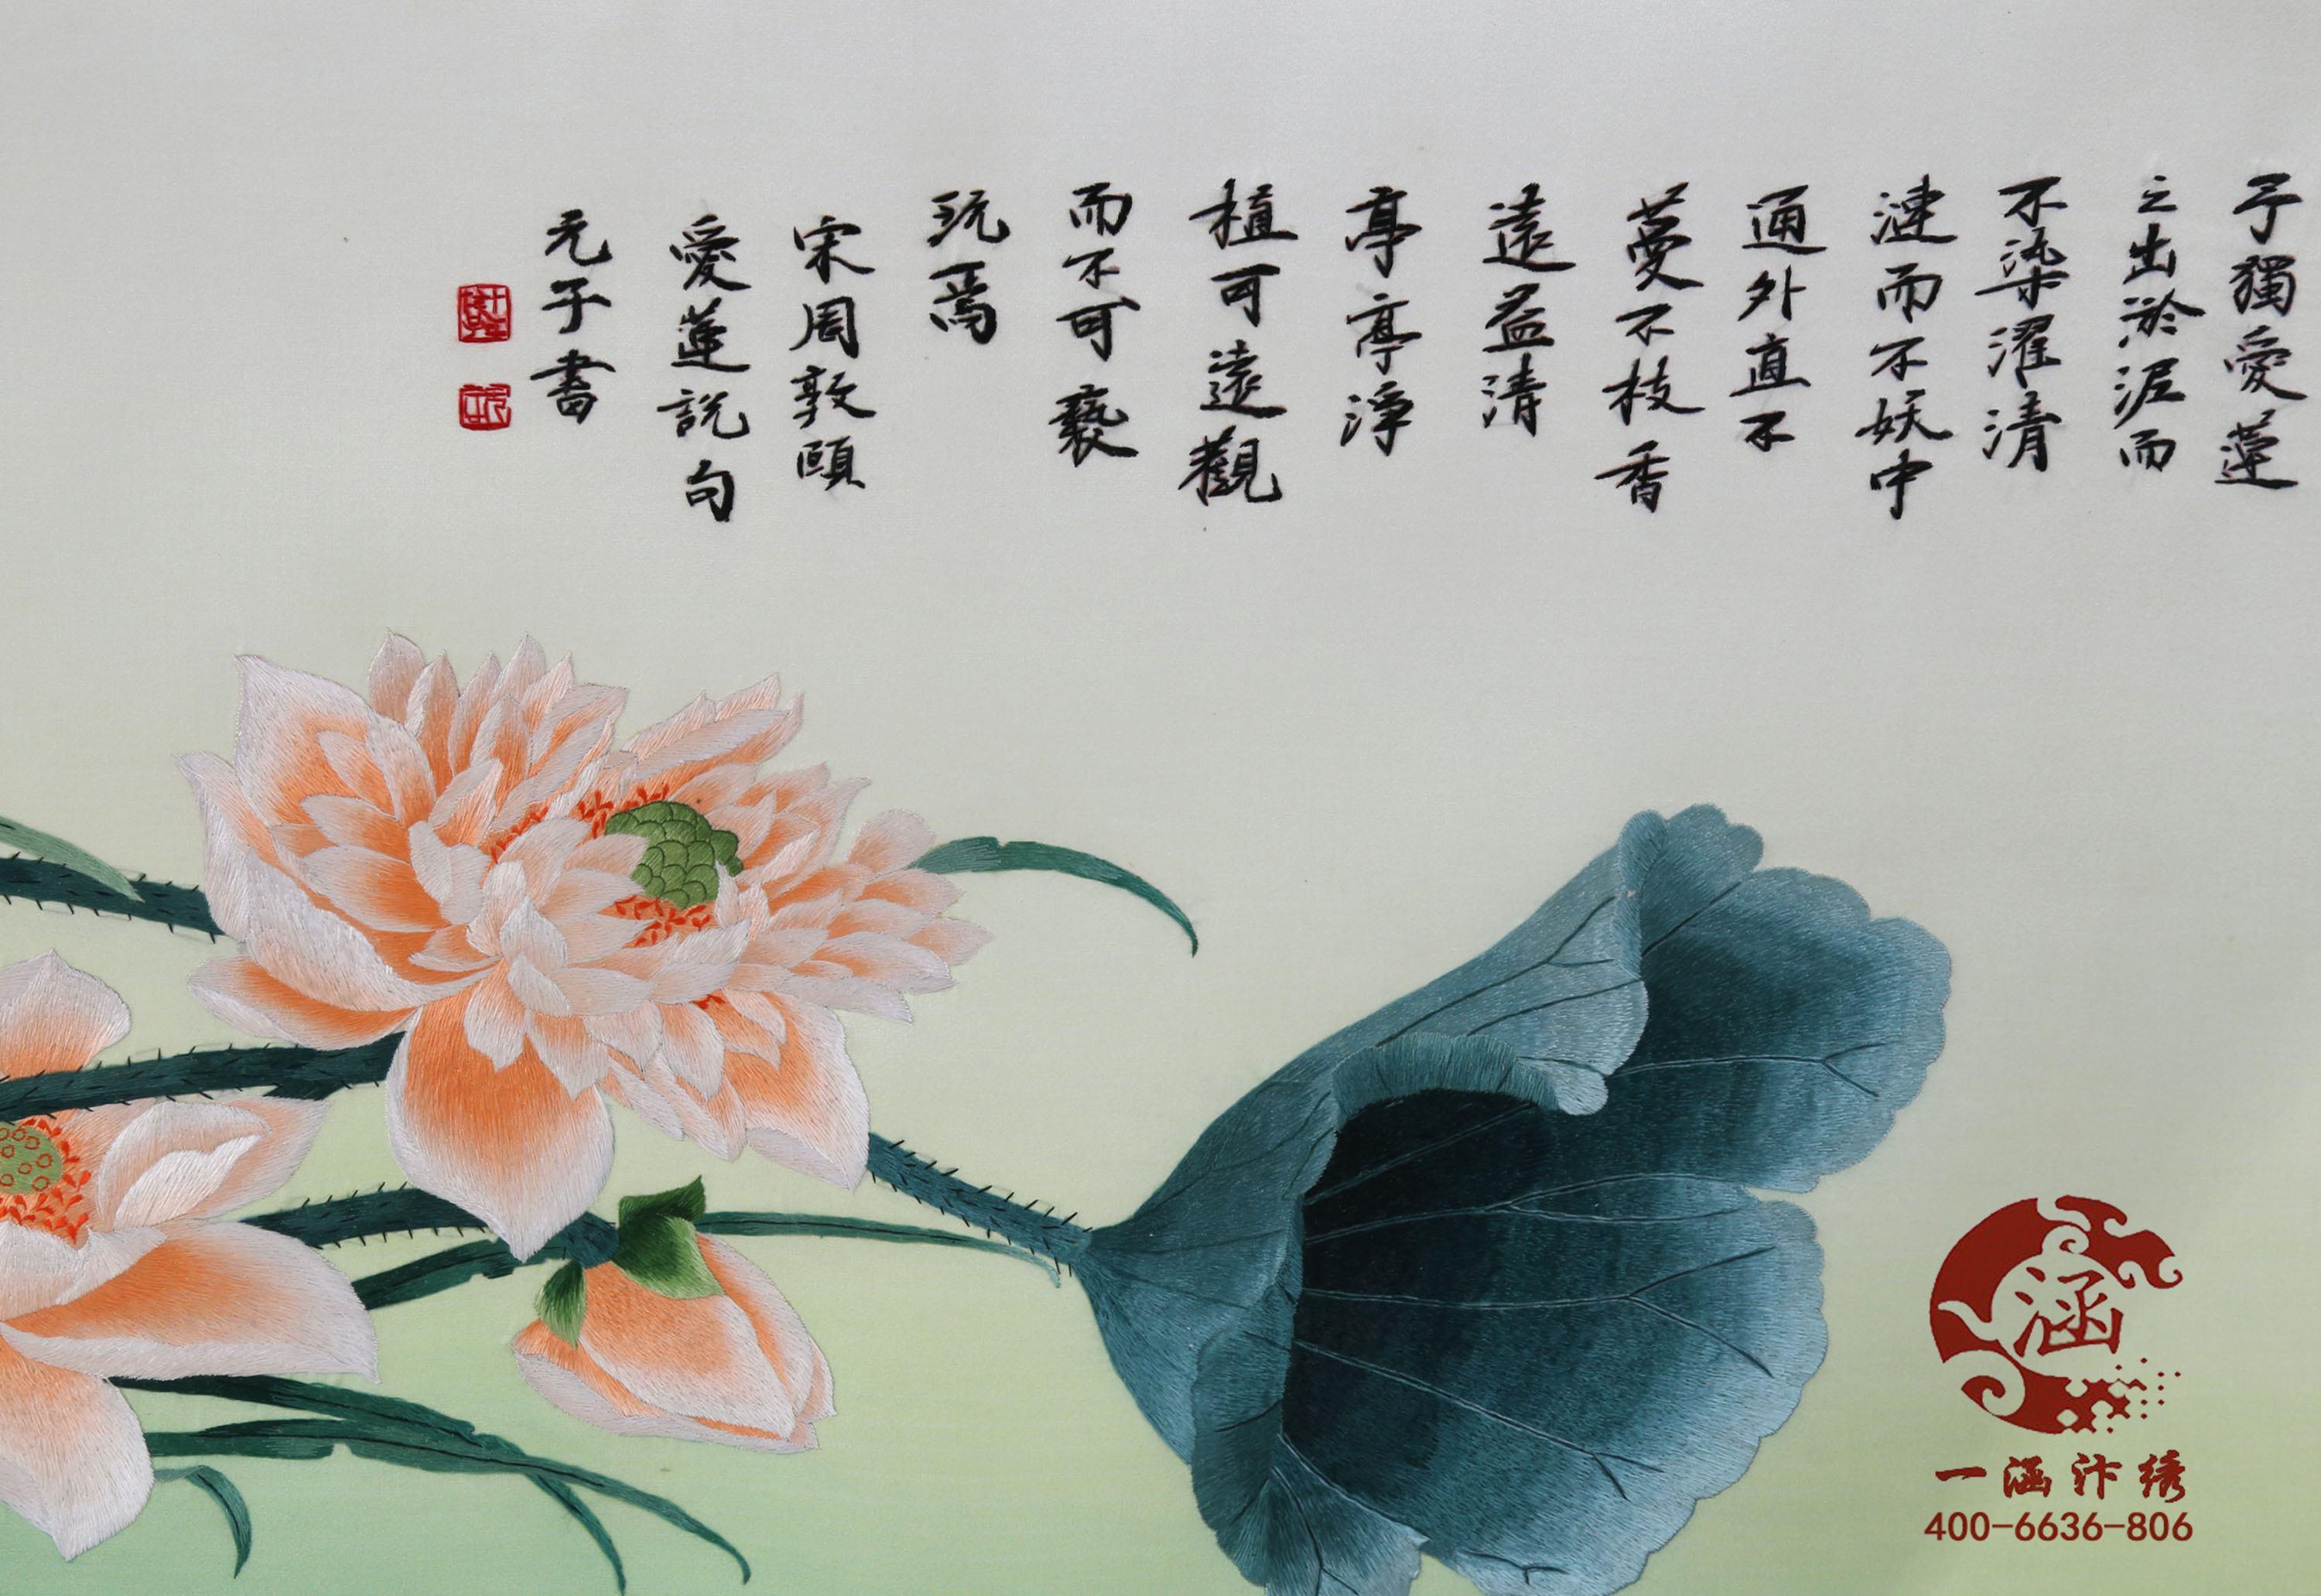 予獨愛蓮
之出淤泥而
不染濯清
漣而不妖中
通外直不
蔓不枝香
遠益清
亭亭淨
植可遠觀
而不可褻
玩焉
宋周敦頤
愛蓮說句
元子書
涵
一涵汴绣
400-6636-806